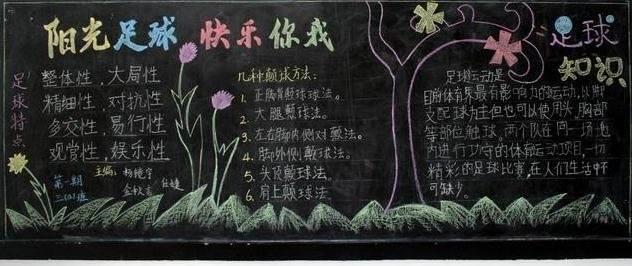 阳光足球 快乐你我
足球特点
整体性,大局性
精细性,对抗性
多变性,易行性
观赏性,娱乐性
主编:
第一期
三(2)班
几种颠球方法:
1. 正脚背颠球球法。
2. 大腿颠球法。
3. 左右脚内侧对颠法。
4. 脚外侧颠球法。
5. 头顶颠球法。
6. 肩上颠球法。
足球
知识
足球运动是
目前体育界最有影响力的运动,以脚
支配球为主但也可以使用头,胸部
等部位触球,两个队在同一场地
内进行攻守的体育运动项目,一场
精彩的足球比赛,在人们生活中不
可缺少。